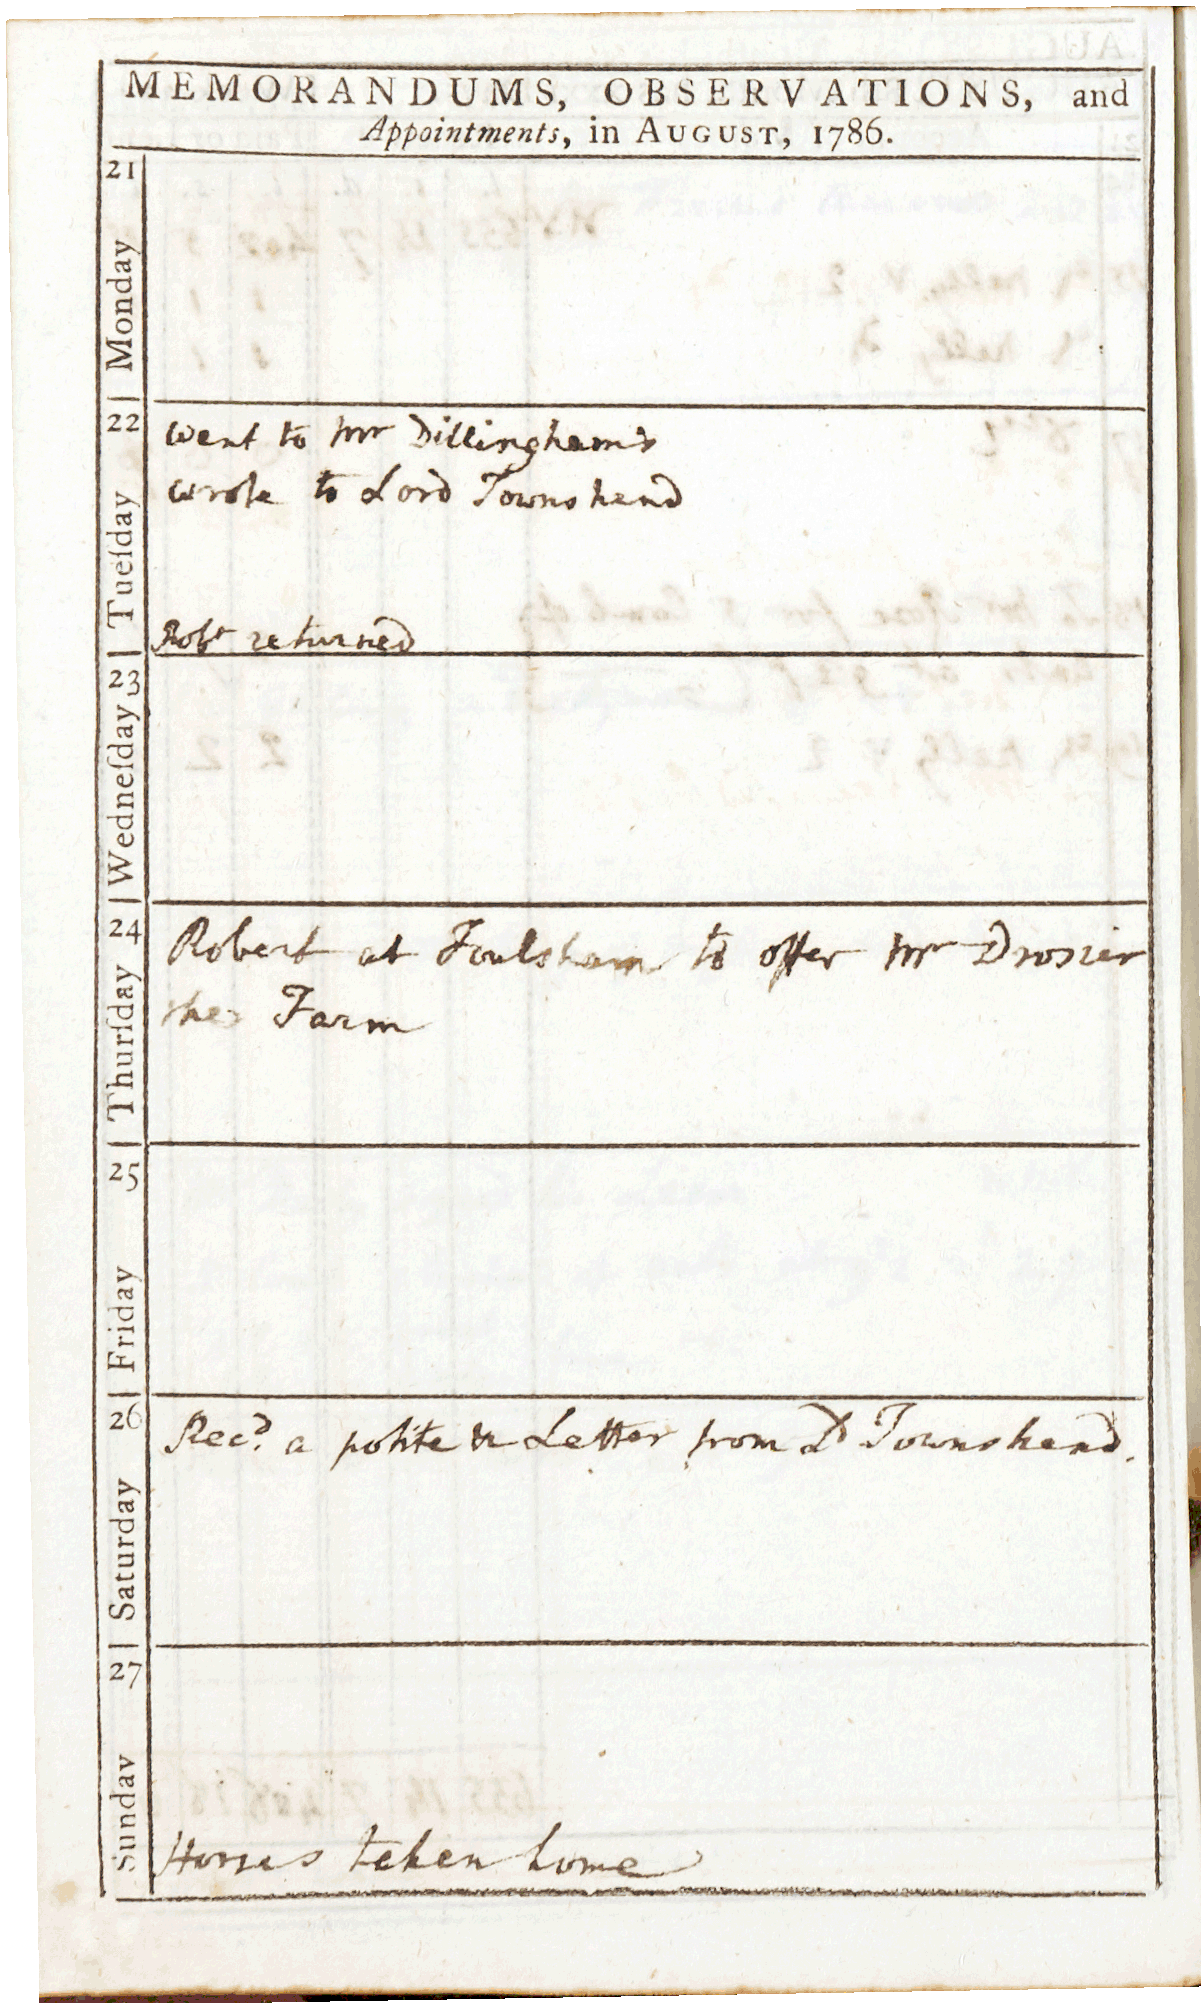 MEMORANDUMS, OBSERVATIONS, and
Appointments, in AUGUST, 1786.
21
Monday
22
Tueſday
went to Mr Dillingham's
wrote to Lord Townshend
Robt returned
23
Wedneſday
24
Thurſday
Robert at Foulsham to offer Mr Drosier
the Farm
25
Friday
26
Saturday
Recd. a polite Letter from Ld Townshend.
27
Sunday
Horses taken home